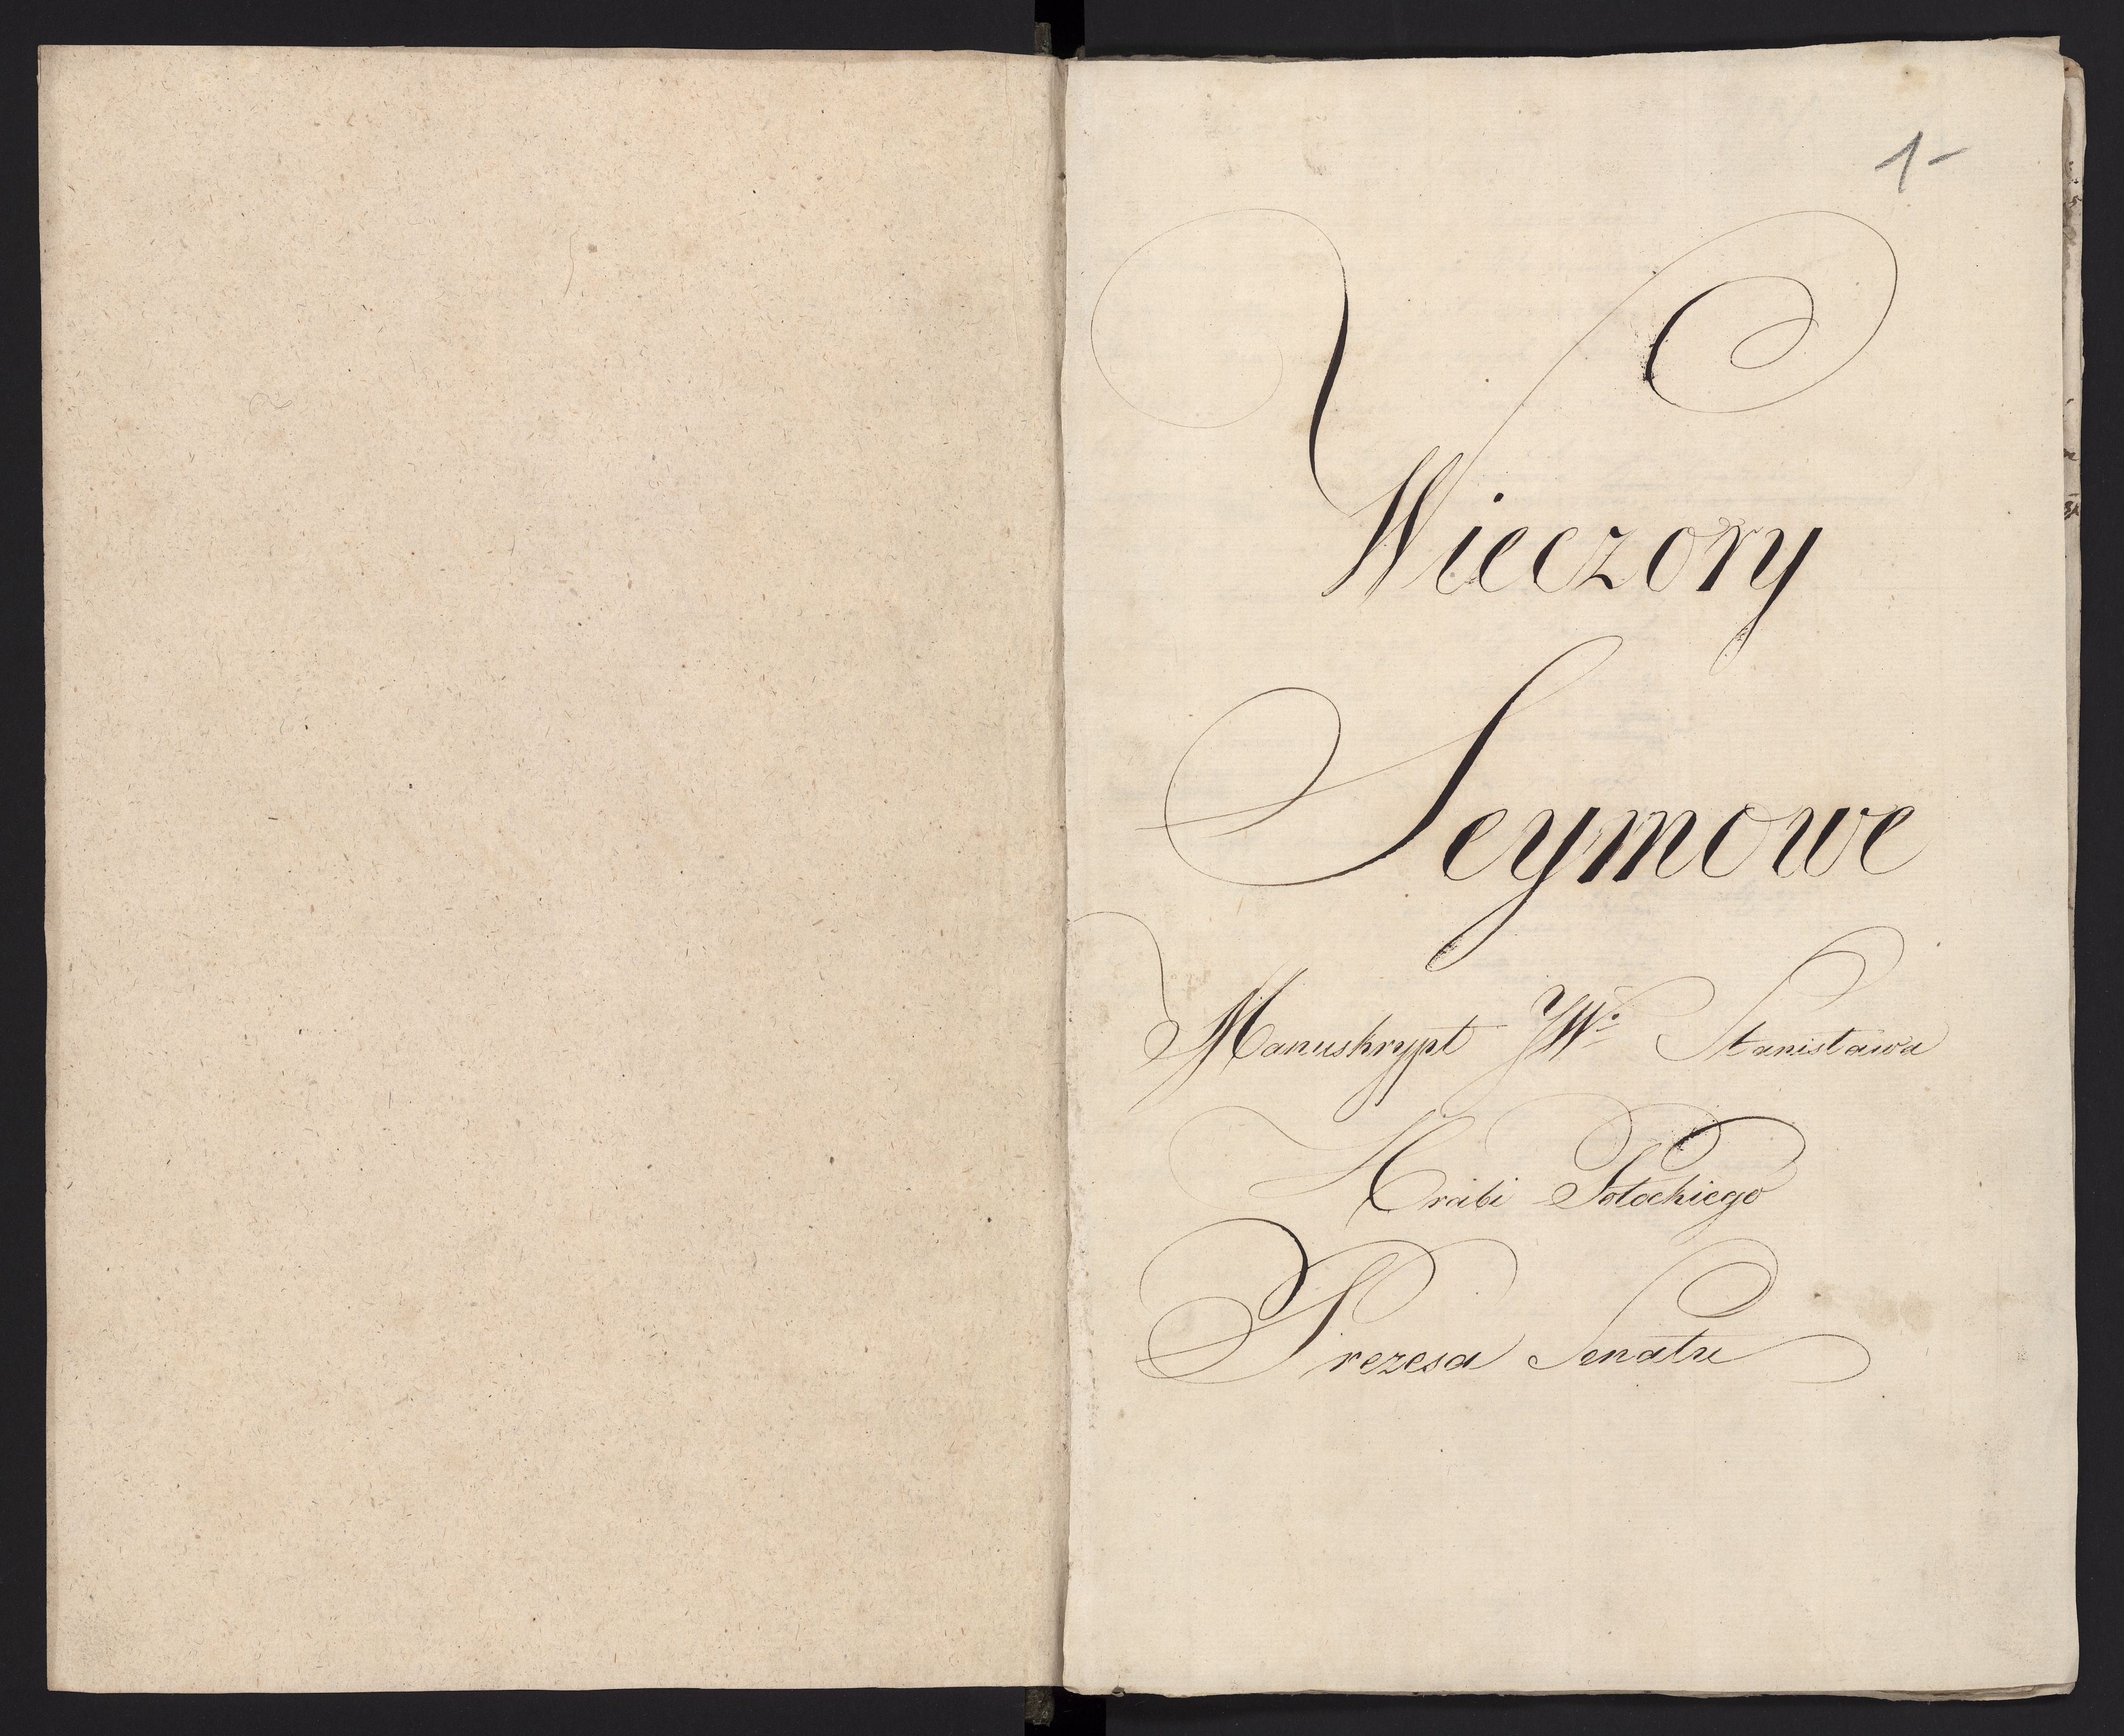 1-
Wieczory
Seymowe
Manuskrypt JWo Stanisława
Hrabi Potockiego
Prezesa Senatu